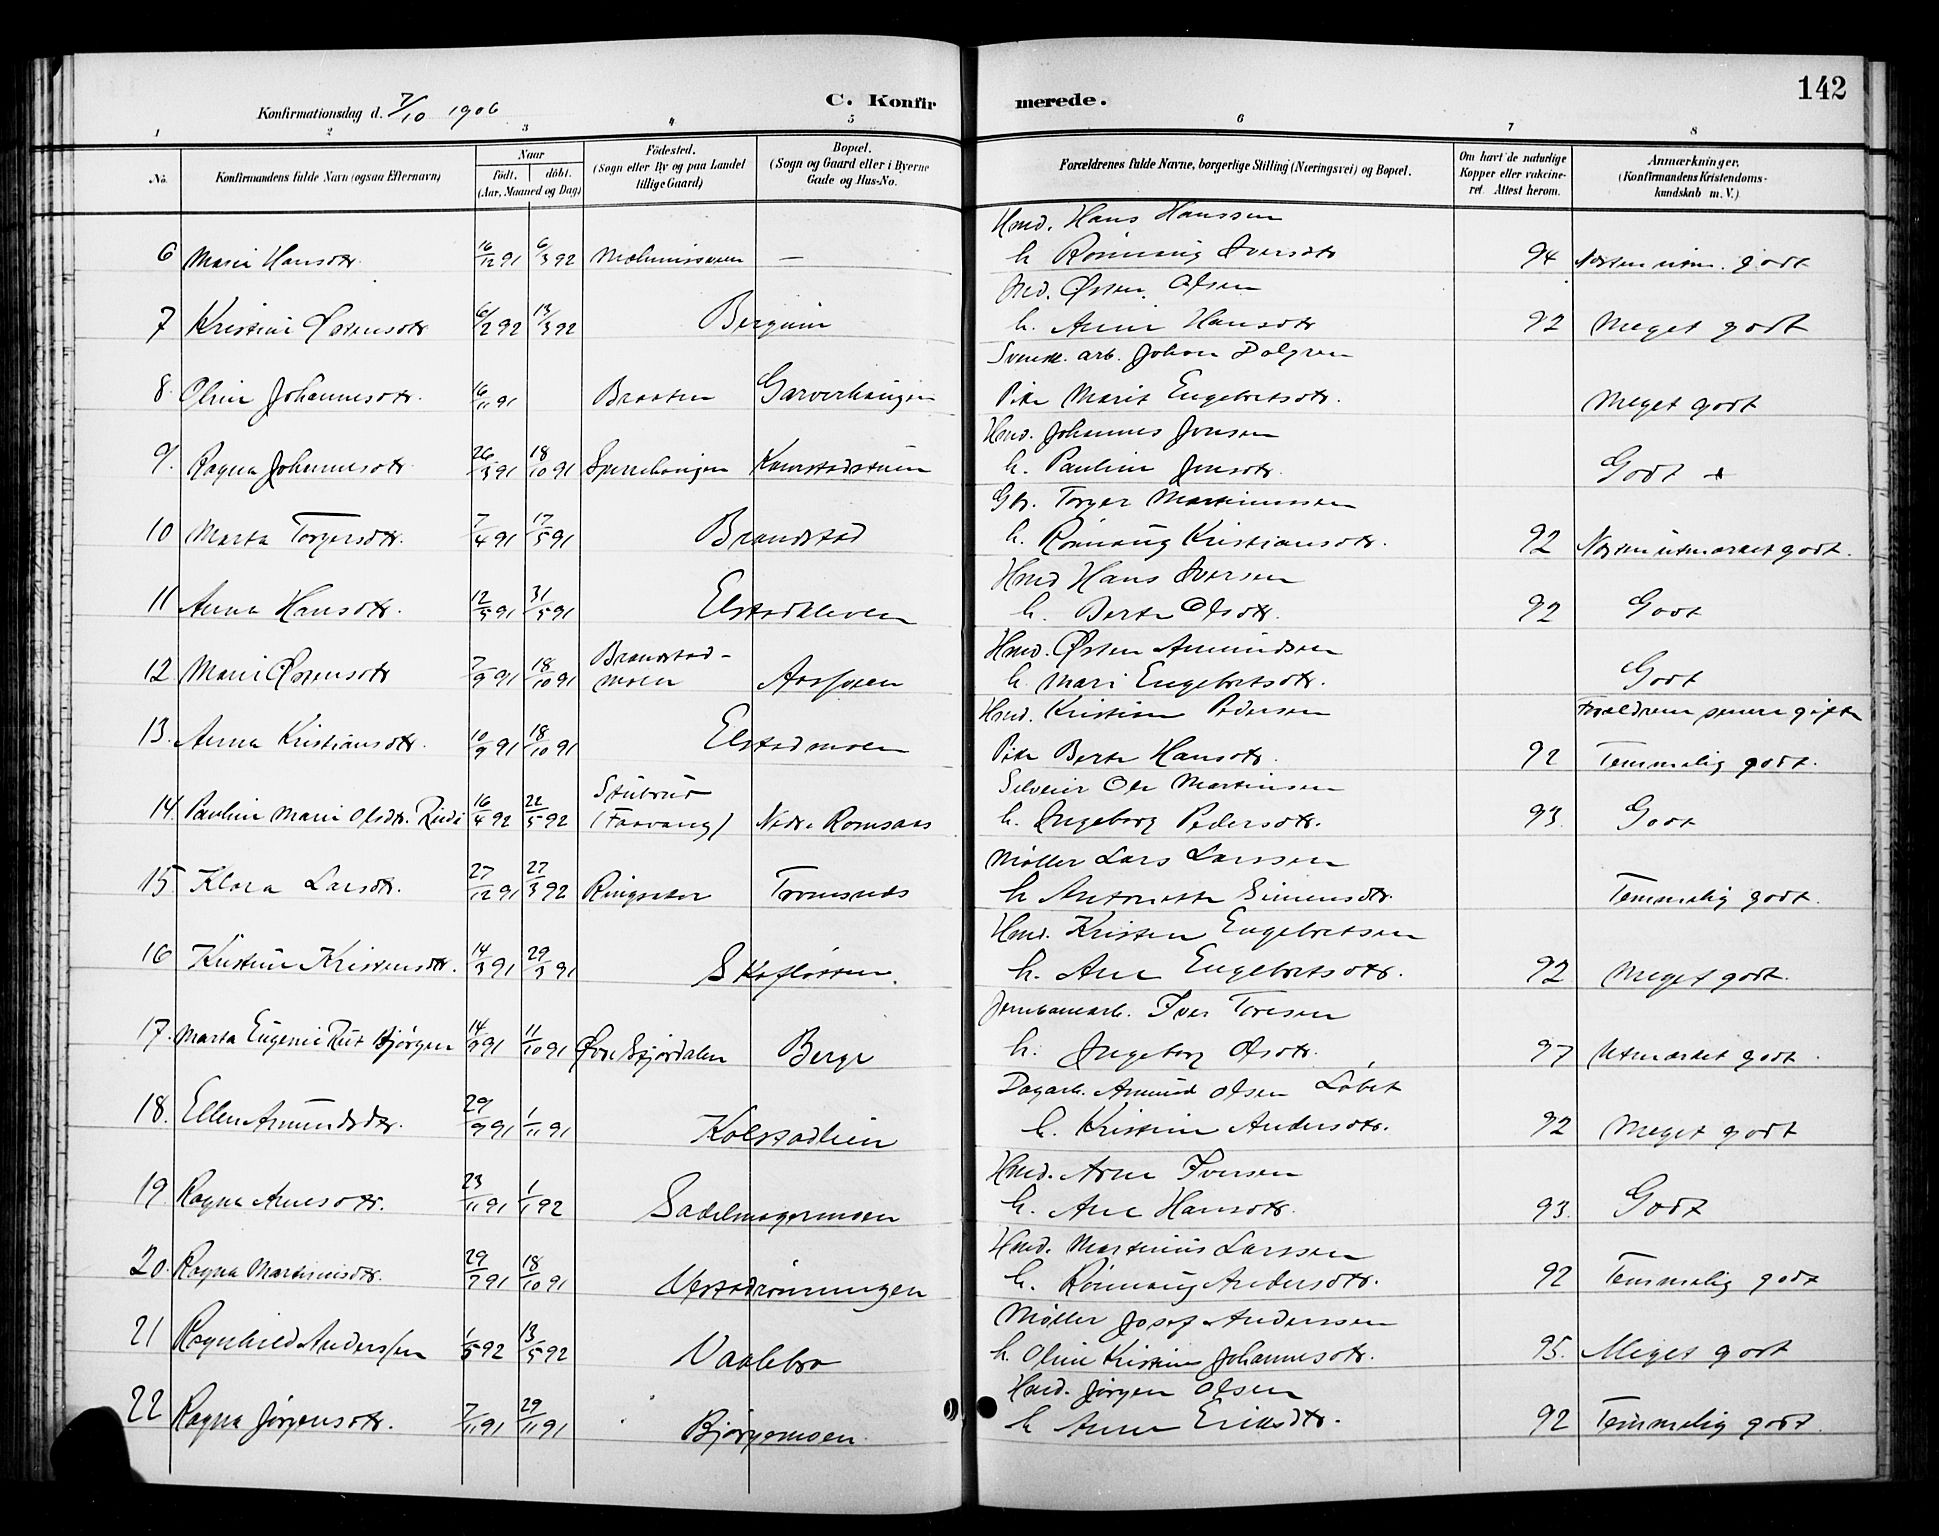 142
Konfirmationsdag d. 7/10 1906
C. Konfirmerede.
1 2 3 4 5 6 7 8
No.
Konfirmandens fulde Navn (ogsaa Efternavn)
Naar
födt. döbt.
(Aar, Maaned og Dag)
Födested.
(Sogn eller By og paa Landet
tillige Gaard)
Bopæl.
(Sogn og Gaard eller i Byerne
Gade og Hus-No.
Forældrenes fulde Navne, borgerlige Stilling (Næringsvei) og Bopæl.
Om havt de naturlige
Kopper eller vakcine-
ret. Attest herom.
Anmærkninger.
(Konfirmandens Kristendoms-
kundskab m. V.)
Hmd. Hans Hanssen
6 Mari Hansdtr. 16/12 91 6/3 92 — h. Rönnaug Iversdtr 94 Næsten utm. godt
Ind. Østen Olsen
7 Kristine Østensdtr 6/2 92 13/3 92 Bergum h. Anne Hansdtr 92 Meget godt
Svensk arb. Johan Dalgren
8. Oline Johannesdtr. 16/11 91 Braaten Garverhaugen Pike Marit Engebretsdtr. Meget godt
Hmd. Johannes Jonsen
9. Ragna Johannesdtr. 26/3 91 18/10 91 Kamstadstuen h. Pauline Jonsdtr. Godt +
Gbr. Torger Martinussen
10 Marta Torgersdtr. 7/4 91 17/5 91 Brandstad h. Rönnaug Kristiansdtr. 92 Næsten utmærket godt.
Hmd Hans Iversen
11 Anna Hansdtr. 12/3 91 31/5 91 Elstadkleven h. Berte Olsdtr. 92 Godt
Hmd. Østen Amundsen
12 Mari Østensdtr 7/9 91 18/10 91 Brandstad-
moen h. Mari Engebretsdtr. Godt
Hmd. Kristian Pedersen Forældrene senere gifte
13. Anna Kristiansdtr. 10/9 91 18/10 91 Elstadmoen Pike Berte Hansdtr. 92 Temmelig godt.
Ole Martinsen
14. Pauline Marie Olsdtr. 16/4 92 22/5 92 Stubrud
(Faavang) Nedre Romsaas h. Ingeborg Pedersdtr. 93. Godt
Møller Lars Larssen
15 Klara Larsdtr. 27/12 91 27/3 92 Ringseter Tromsnes h Antonette Simensdtr. Temmelig godt.
Hmd. Kristen Engebretsen
16 Kristine Kristensdtr. 14/3 91 29/3 91 Skeflotten. h. Ane Engebretsdtr. 92 Meget godt.
Jernbanearb. Iver Toresen
17. Marta Eugenie Rut Bjørgen 14/9 91 11/10 91 Øvre Stjørdalen Berge h. Ingeborg Olsdtr. 97 Utmærket godt.
Dagarb. Amund Olsen Løbet
18. Ellen Amundsdtr. 29/9 91 1/11 91 Kolstadlien h. Kristine Andersdtr. 92 Meget godt
Hmd. Arne Iversen
19. Ragna Arnesdtr. 23/11 91 1/1 92 Sadelmagermoen h. Ane Hansdtr. 93. Godt
Hmd. Martinus Larssen
20. Ragna Martinusdtr. 29/7 91 18/10 91 h. Rönnaug Andersdtr. 92 Temmelig godt
Møller Josef Anderssen
21 Ragnhild Anderssen 1/3 92 13/5 92 Vaalebro h. Oline Kristine Johannesdtr. 95. Meget godt
Hmd. Jørgen Olsen
22 Ragna Jørgensdtr. 7/11 91 29/11 91 Bjørgemoen h Anne Eriksdtr. 92 Temmelig godt.